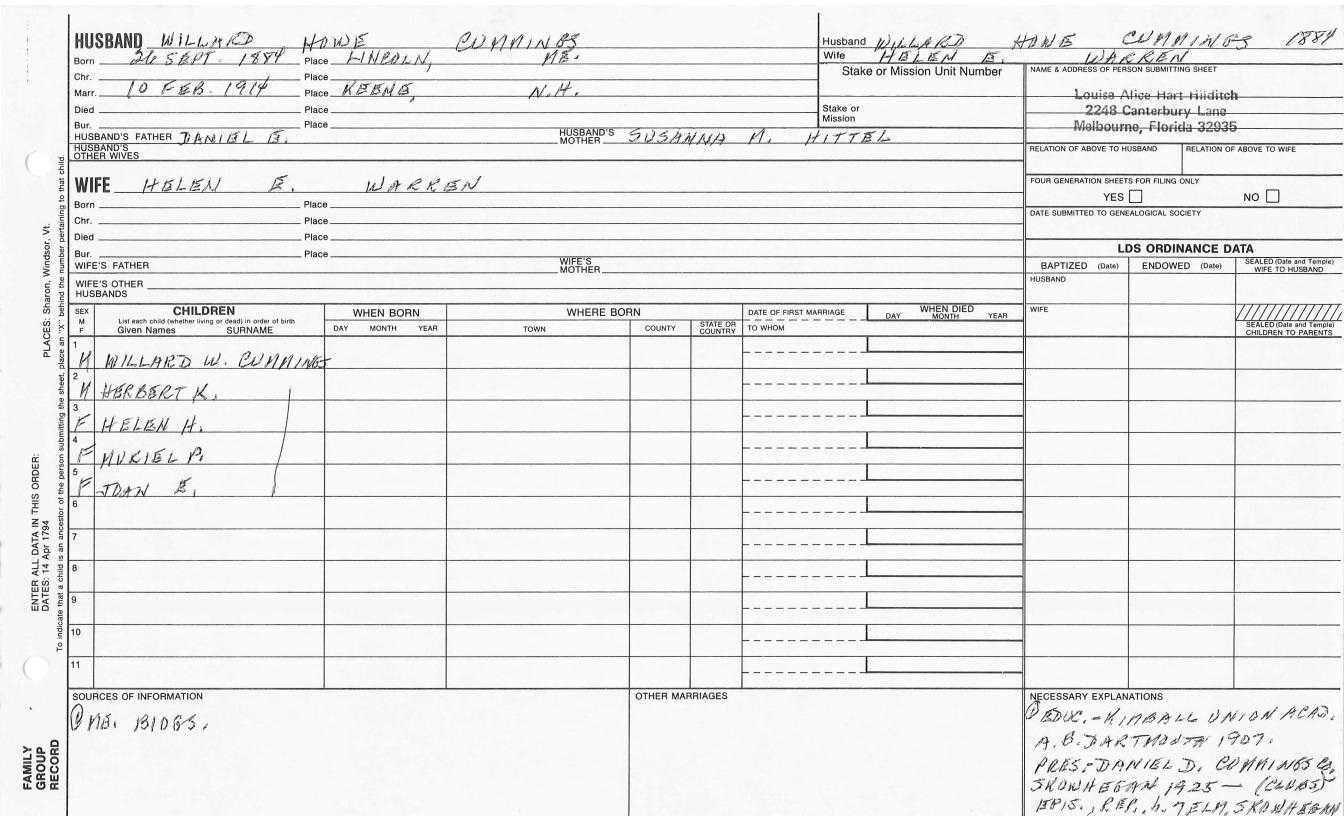 HUSBAND WILLARD HOWE CUMMINGS
Born 26 SEPT. 1884 Place LINCOLN, ME.
Chr. Place
Marr. 10 FEB. 1914 Place KEENE, N.H.
Died Place
Bur. Place
HUSBAND'S FATHER DANIEL E. HUSBAND'S MOTHER SUSANNA M. HITTEL
HUSBAND'S OTHER WIVES
Husband WILLARD HOWE CUMMINGS 1884
Wife HELEN E. WARREN
Stake or Mission Unit Number
Stake or Mission
NAME & ADDRESS OF PERSON SUBMITTING SHEET
Louise Alice Hart Hilditch
2248 Canterbury Lane
Melbourne, Florida 32935
RELATION OF ABOVE TO HUSBAND RELATION OF ABOVE TO WIFE
FOUR GENERATION SHEETS FOR FILING ONLY
YES NO
DATE SUBMITTED TO GENEALOGICAL SOCIETY
WIFE HELEN E. WARREN
Born Place
Chr. Place
Died Place
Bur. Place
WIFE'S FATHER WIFE'S MOTHER
WIFE'S OTHER HUSBANDS
LDS ORDINANCE DATA
BAPTIZED (Date) ENDOWED (Date) SEALED (Date and Temple) WIFE TO HUSBAND
HUSBAND
WIFE
SEALED (Date and Temple) CHILDREN TO PARENTS
SEX M F
CHILDREN
List each child (whether living or dead) in order of birth
Given Names SURNAME
WHEN BORN
DAY MONTH YEAR
WHERE BORN
TOWN COUNTY STATE OR COUNTRY
DATE OF FIRST MARRIAGE
TO WHOM
WHEN DIED
DAY MONTH YEAR
1 M WILLARD W. CUMMINGS
2 M HERBERT K.
3 F HELEN H.
4 F MURIEL P.
5 F JOAN E.
6
7
8
9
10
11
SOURCES OF INFORMATION
① ME. BIOGS.
OTHER MARRIAGES
NECESSARY EXPLANATIONS
① EDUC.-KIMBALL UNION ACAD.
A.B. DARTMOUTH 1907.
PRES.-DANIEL D. CUMMINGS Co,
SKOWHEGAN 1925 — (CLUBS)
EPIS., REP., h. 7 ELM, SKOWHEGAN
ENTER ALL DATA IN THIS ORDER:
DATES: 14 Apr 1794 PLACES: Sharon, Windsor, Vt.
To indicate that a child is an ancestor of the person submitting the sheet, place an "X" behind the number pertaining to that child.
FAMILY
GROUP
RECORD